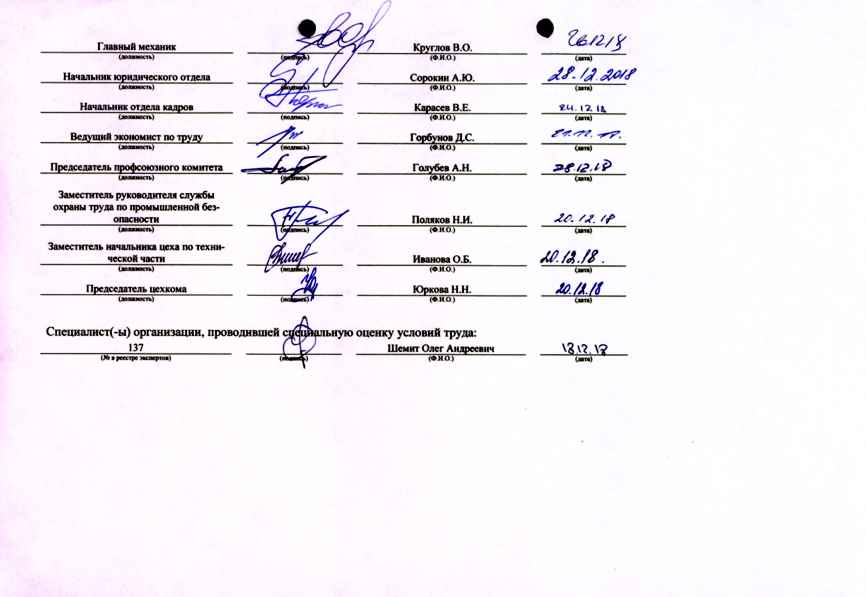 Главный механик Круглов В.О. 26.12.18
(должность) (подпись) (Ф.И.О.) (дата)
Начальник юридического отдела Сорокин А.Ю. 28.12.2018
(должность) (подпись) (Ф.И.О.) (дата)
Начальник отдела кадров Карасев В.Е. 24.12.18
(должность) (подпись) (Ф.И.О.) (дата)
Ведущий экономист по труду Горбунов Д.С.
(должность) (подпись) (Ф.И.О.) (дата)
Председатель профсоюзного комитета Голубев А.Н. 28.12.18
(должность) (подпись) (Ф.И.О.) (дата)
Заместитель руководителя службы
охраны труда по промышленной без-
опасности Поляков Н.И. 20.12.18
(должность) (подпись) (Ф.И.О.) (дата)
Заместитель начальника цеха по техни-
ческой части Иванова О.Б. 20.12.18.
(должность) (подпись) (Ф.И.О.) (дата)
Председатель цехкома Юркова Н.Н. 20.12.18
(должность) (подпись) (Ф.И.О.) (дата)
Специалист(-ы) организации, проводившей специальную оценку условий труда:
137 Шемит Олег Андреевич
(№ в реестре экспертов) (подпись) (Ф.И.О.) (дата)